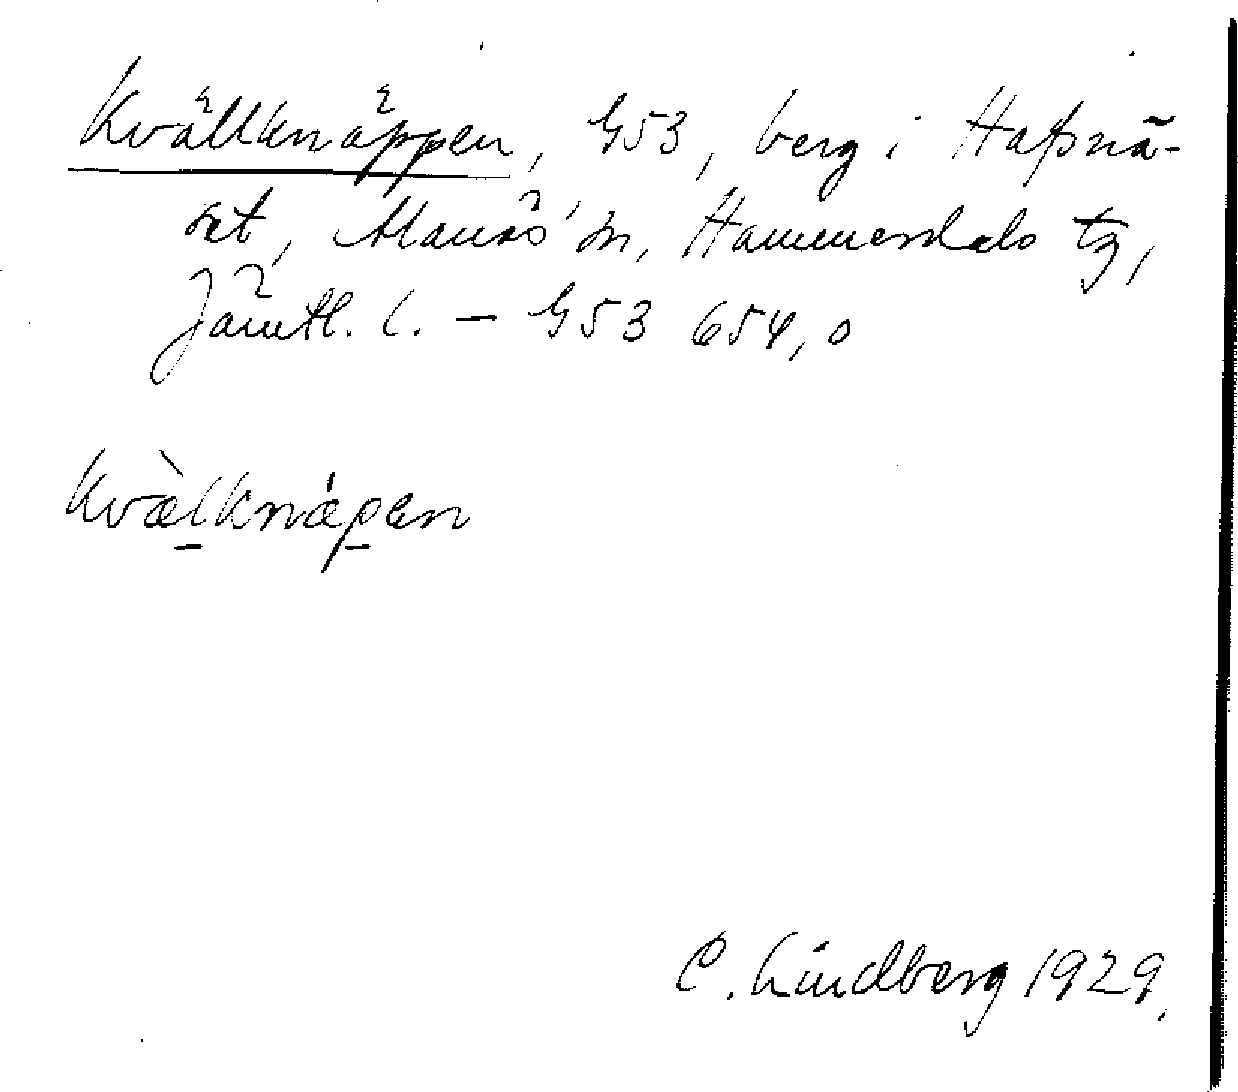 Kvällknäppen, G53, berg i Hafsnä-
set, Alanäs sn, Hammerdals tg,
Jämtl. l. – G53 654,0
Kvæ̀lknǽpen
C. Lindberg 1929.